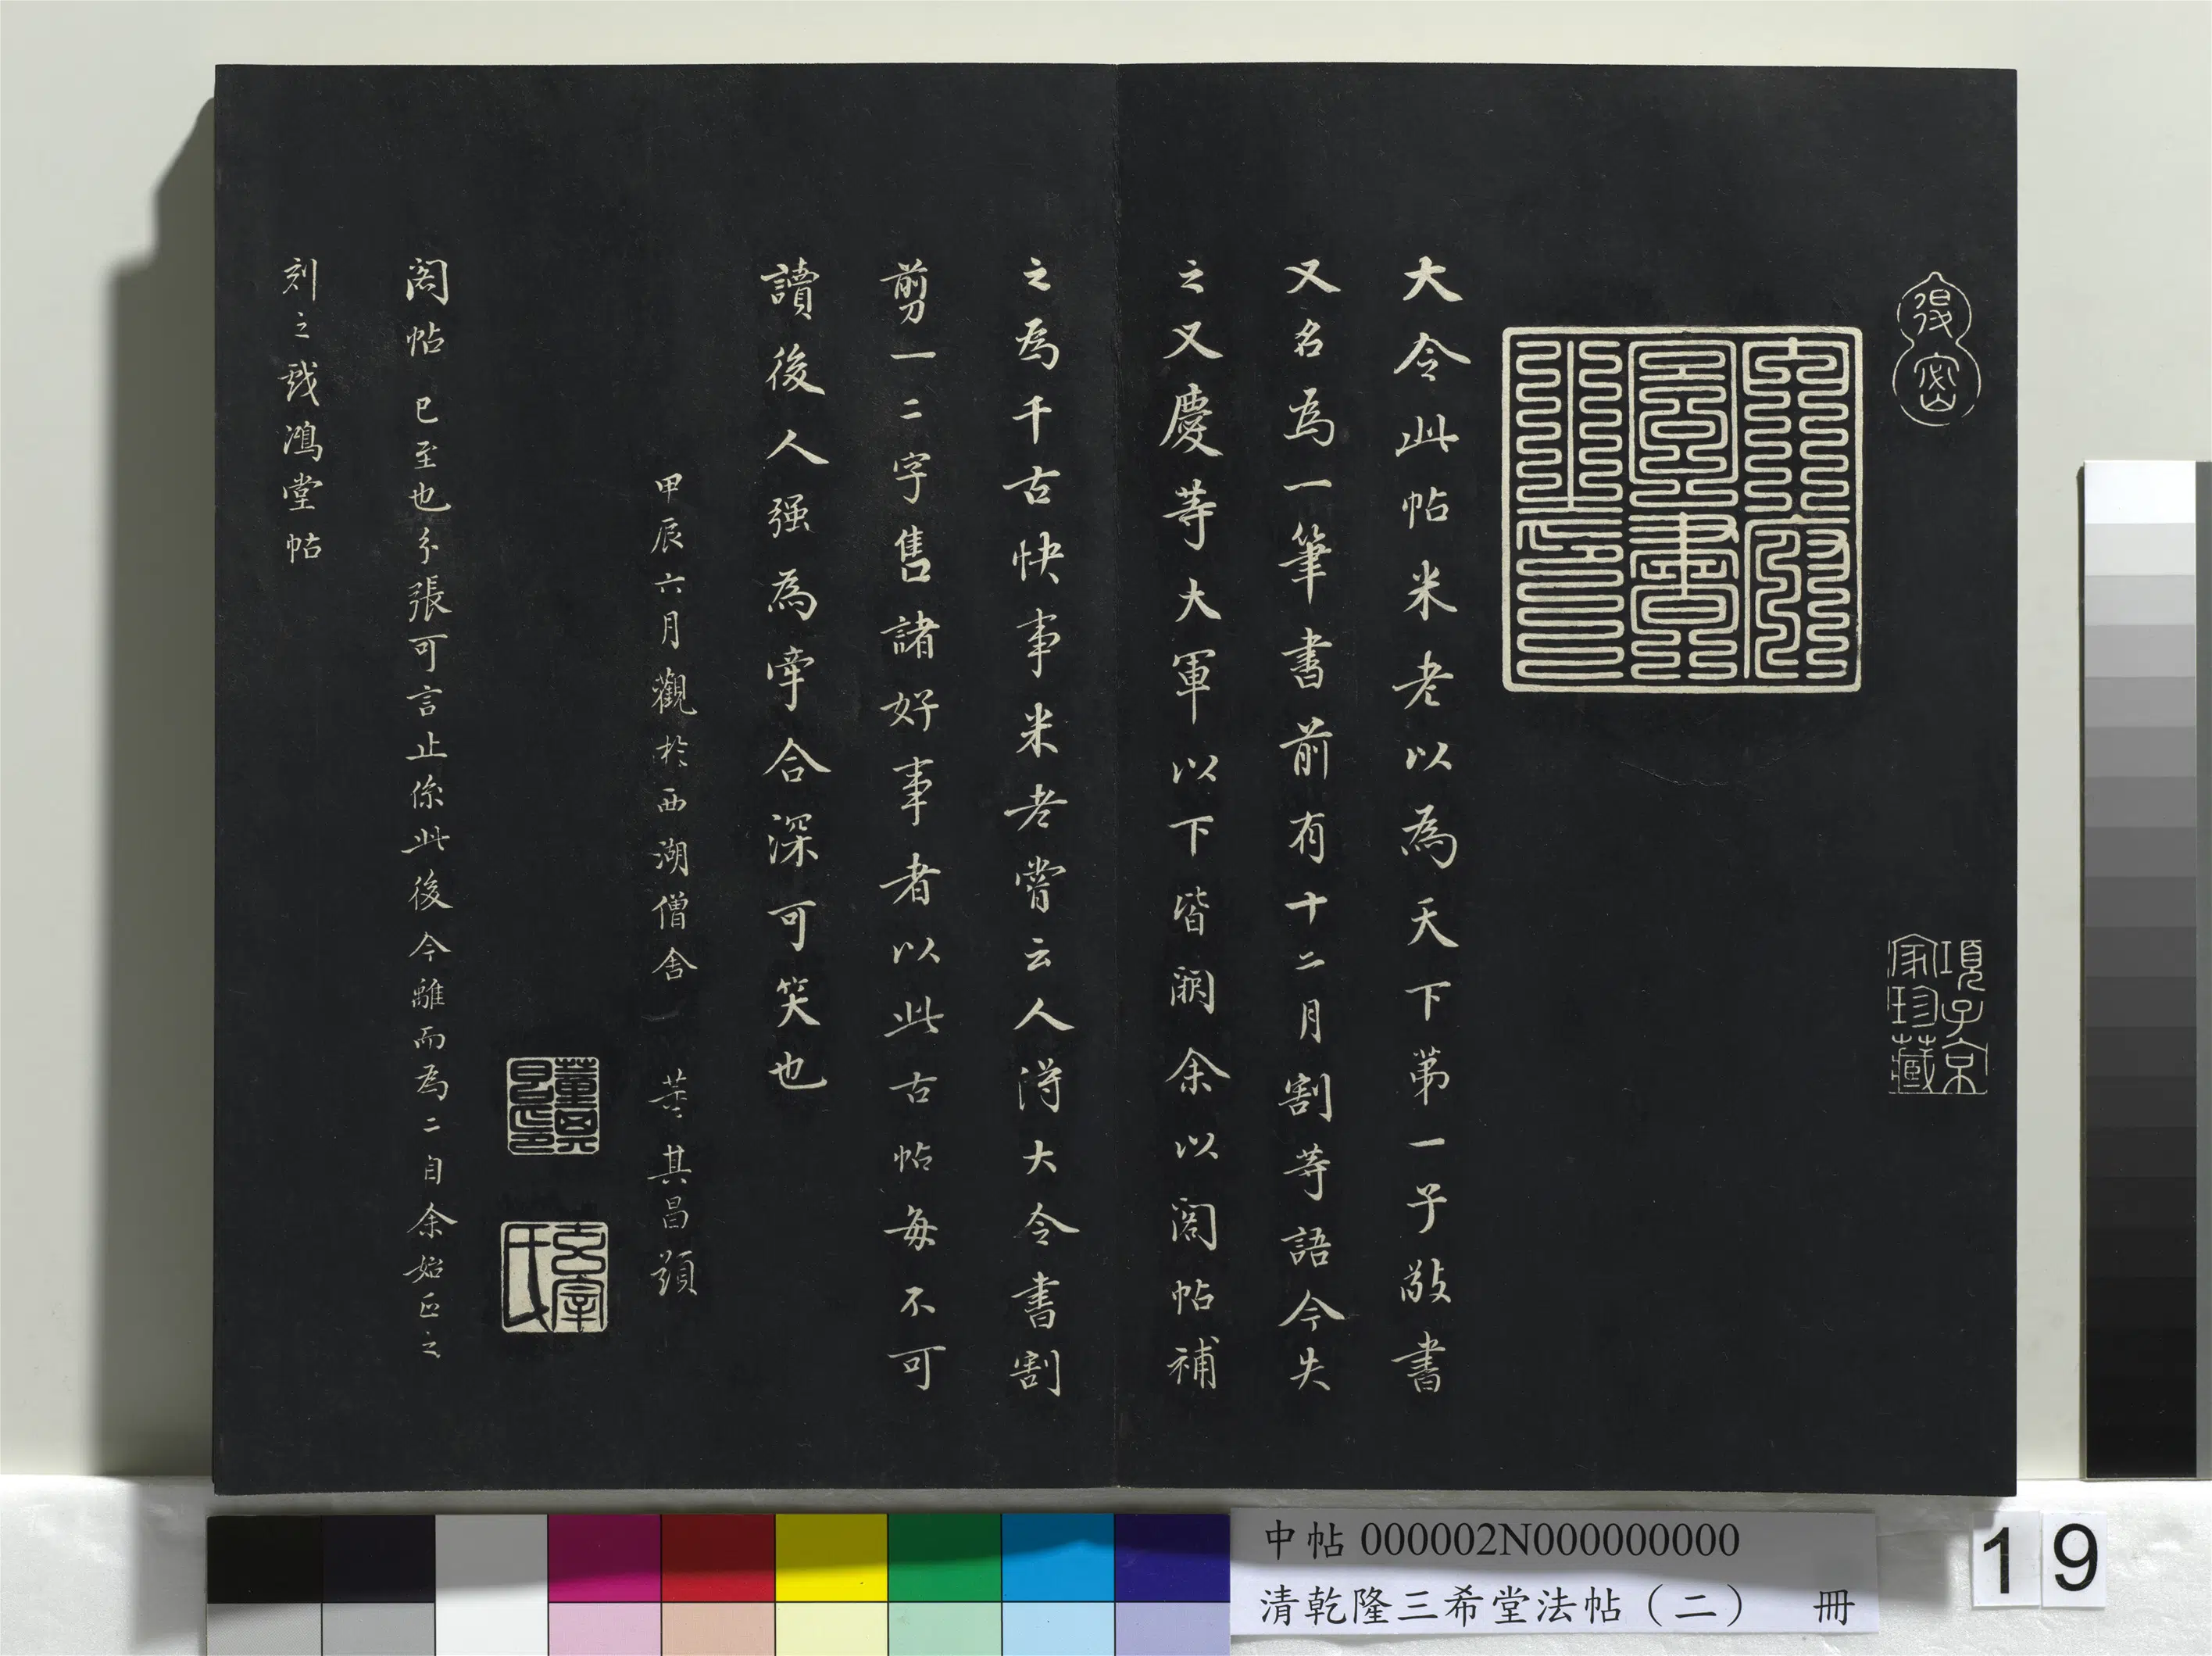 退密
項子京家珍藏
大令此帖米老以為天下第一子敬書
又名為一筆書前有十二月割等語今失
之又慶等大軍以下皆闕余以閣帖補
之為千古快事米老嘗云人得大令書割
剪一二字售諸好事者以此古帖每不可
讀後人强為牽合深可笑也
甲辰六月觀於西湖僧舍 董其昌題
董其昌印
玄宰氏
閣帖巳至也分張可言止係此後今離而為二自余始正之
刻之戲鴻堂帖
中帖 000002N000000000
清乾隆三希堂法帖（二） 冊
19